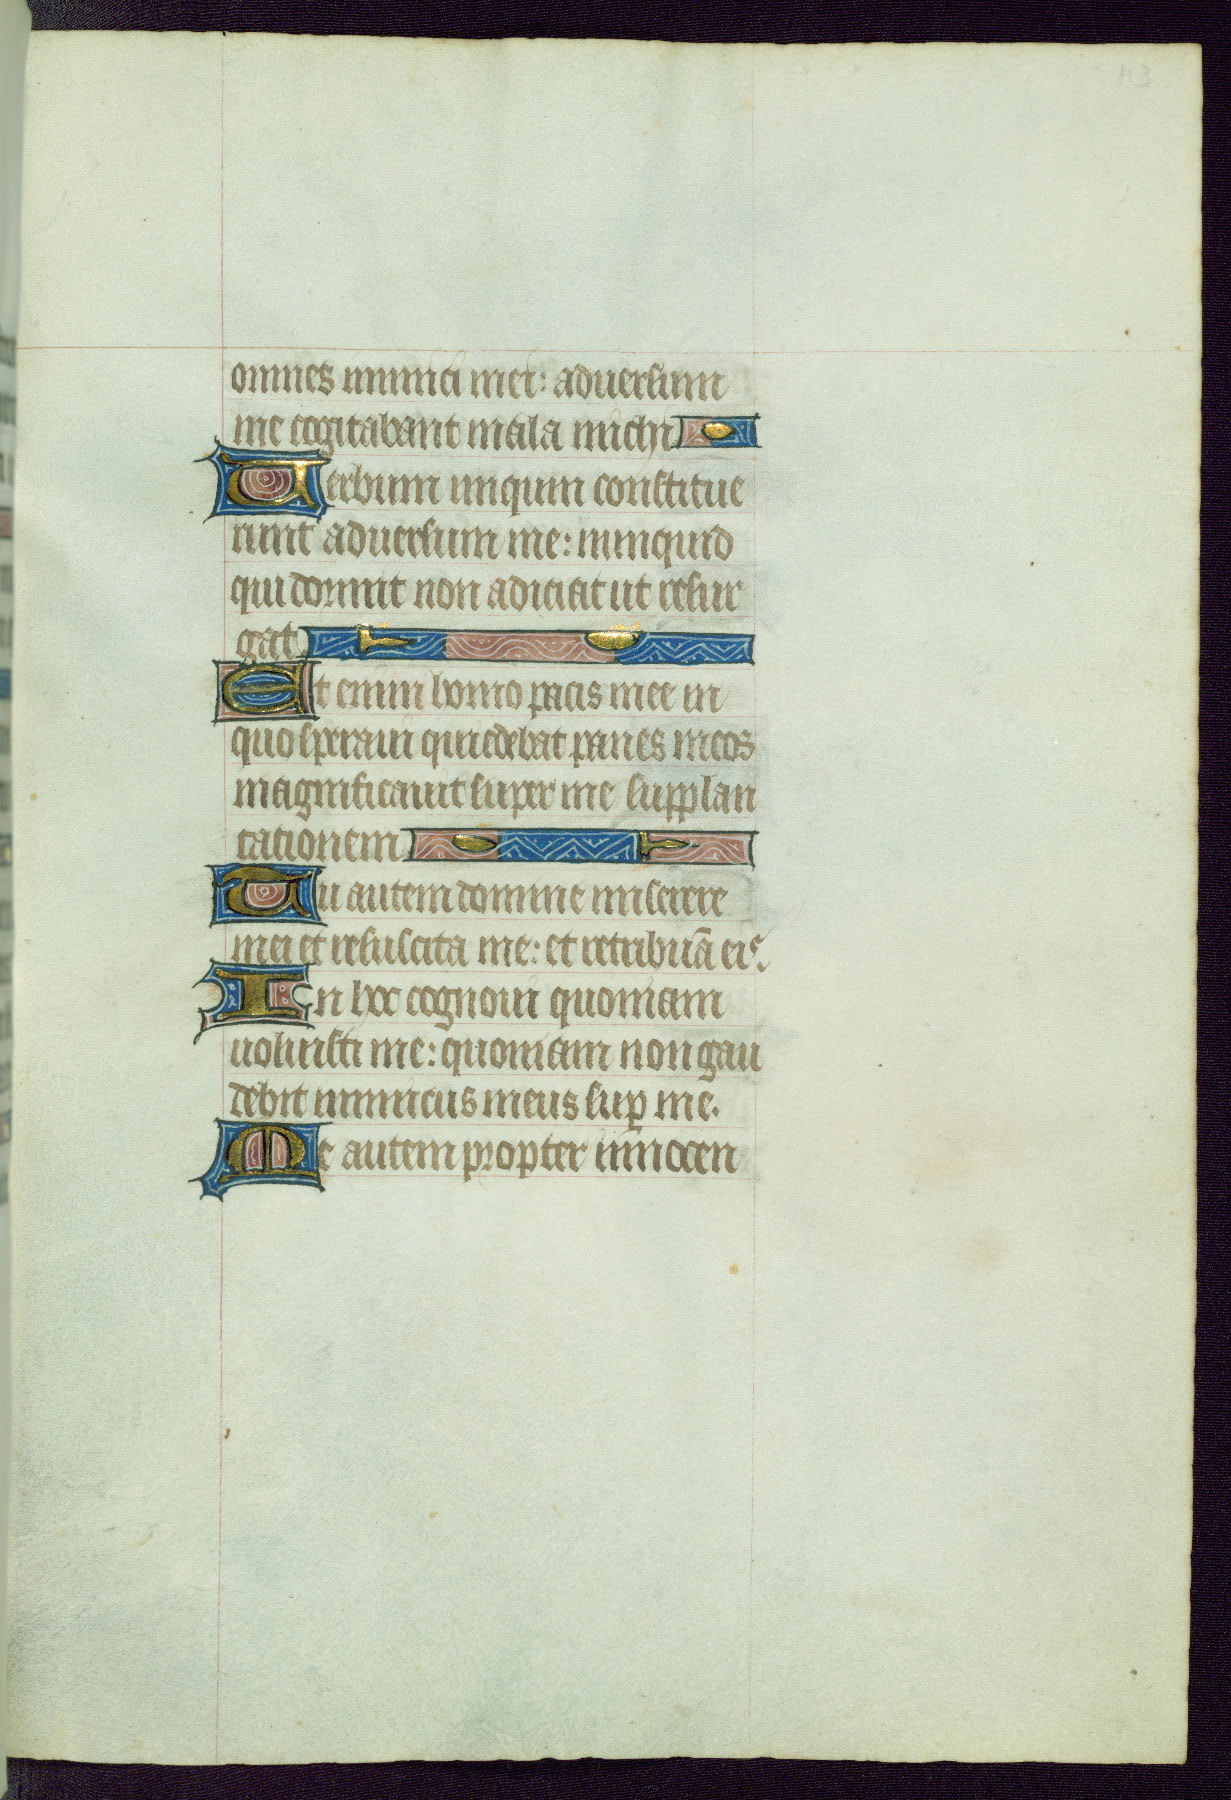 113
omnes inimici mei: aduersum
me cogitabant mala michi
Verbum iniquum constitue
runt aduersum me: nunquid
qui dormit non adiciat ut resur
gat
Et enim homo pacis mee in
quo speraui qui edebat panes meos
magnificauit super me supplan
tationem
Tu autem domine miserere
mei et resuscita me: et retribuā eis.
In hoc cognoui quoniam
uoluisti me: quoniam non gau
debit inimicus meus sup me.
Me autem propter innocen